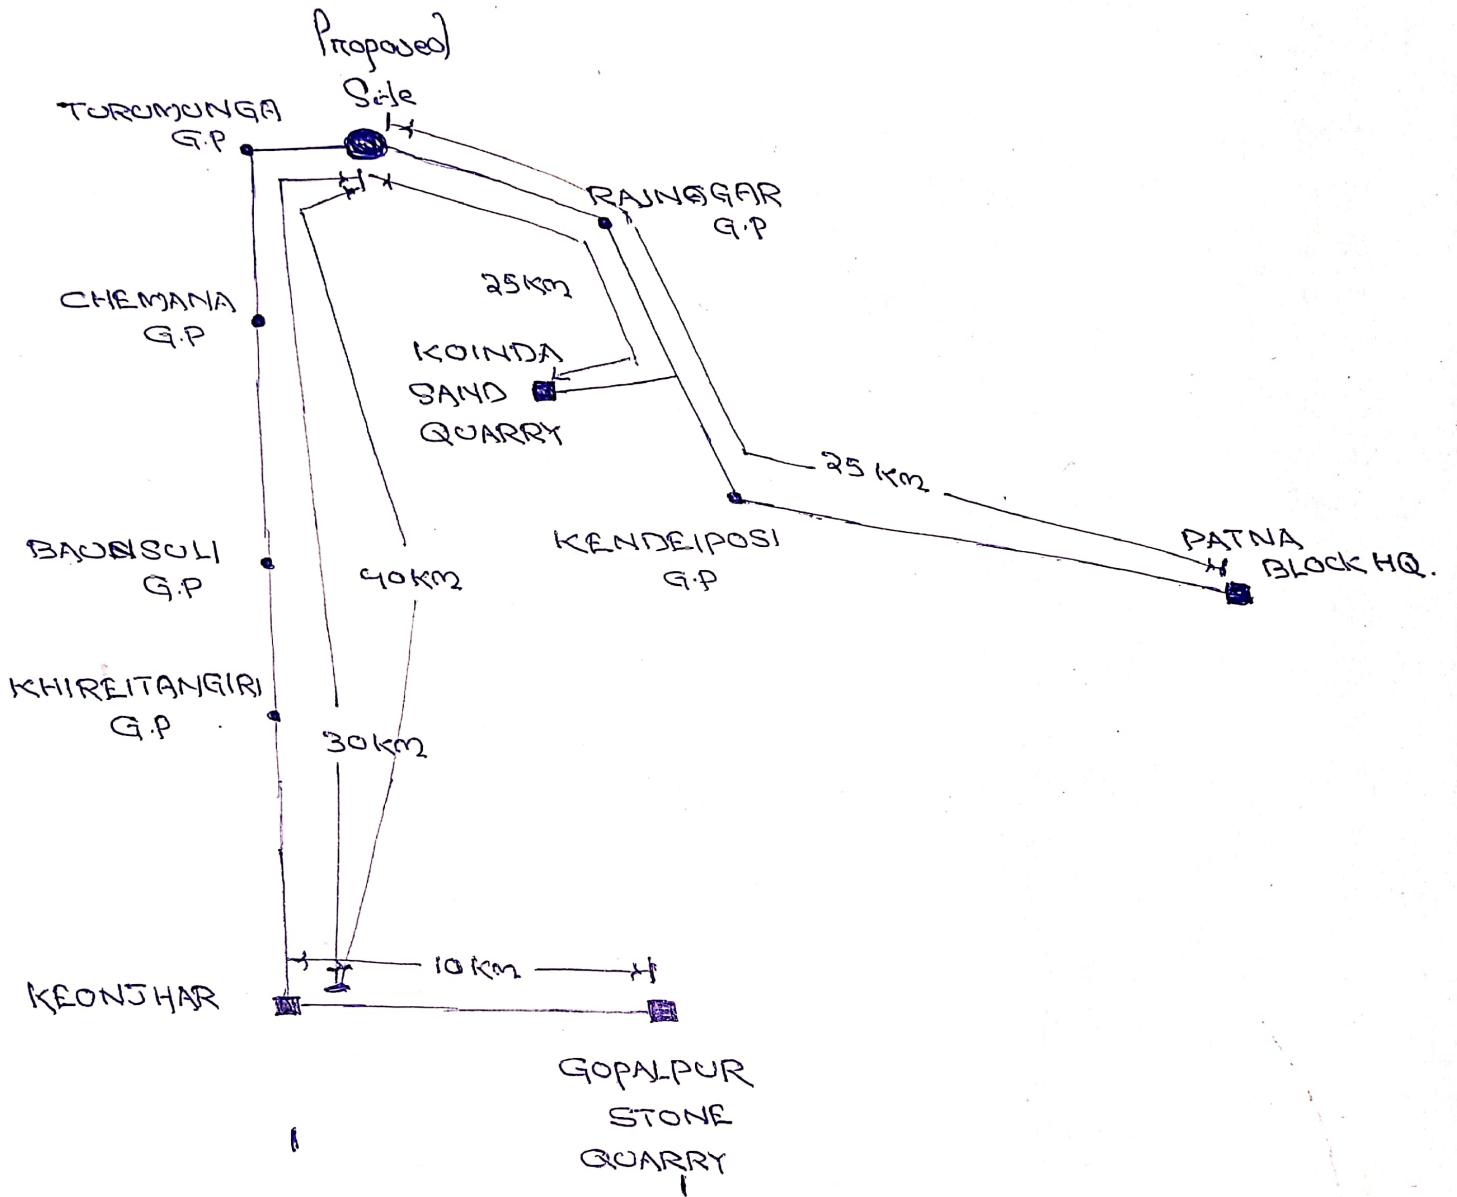 Proposed
Site
TURUMUNGA
G.P
RAJNAGAR
G.P
25KM
CHEMANA
G.P
KOINDA
SAND
QUARRY
25 KM
BAUNSULI
G.P
40KM
KENDEIPOSI
G.P
PATNA
BLOCK HQ.
KHIREITANGIRI
G.P
30KM
10KM
KEONJHAR
GOPALPUR
STONE
QUARRY